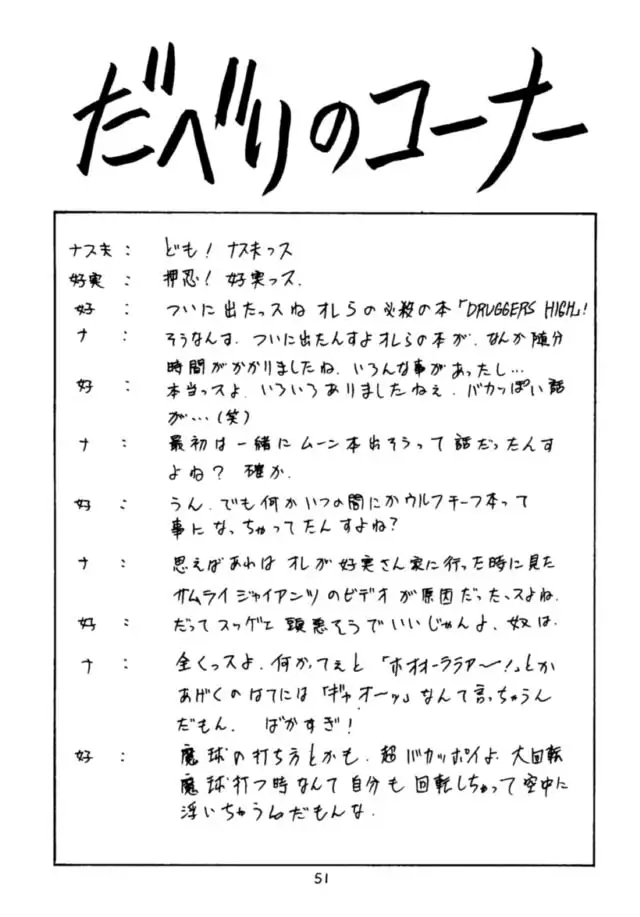 だべりのコーナー
ナス夫： ども！ ナス夫っス
好実： 押忍！ 好実っス．
好： ついに出たっスね オレらの必殺の本「DRUGGERS HIGH」！
ナ： そうなんす．ついに出たんすよオレらの本が．なんか随分
時間がかかりましたね．いろんな事があったし…
好： 本当っスよ．いろいろありましたねぇ．バカっぽい話
が…（笑）
ナ： 最初は一緒にムーン本出そうって話だったんす
よね？ 確か．
好： うん．でも何かいつの間にかウルフチーフ本って
事になっちゃってたんすよね？
ナ： 思えばあれはオレが好実さん家に行った時に見た
サムライジャイアンツのビデオが原因だったっスよね．
好： だってスッゲエ頭悪そうでいいじゃんよ．奴は．
ナ： 全くっスよ．何かってぇと「ホオオーララアー！」とか
あげくのはてには「ギャオーッ」なんて言っちゃうん
だもん． ばかすぎ！
好： 魔球の打ち方とかも．超バカッポイよ．大回転
魔球打つ時なんて自分も回転しちゃって空中に
浮いちゃうんだもんな．
51